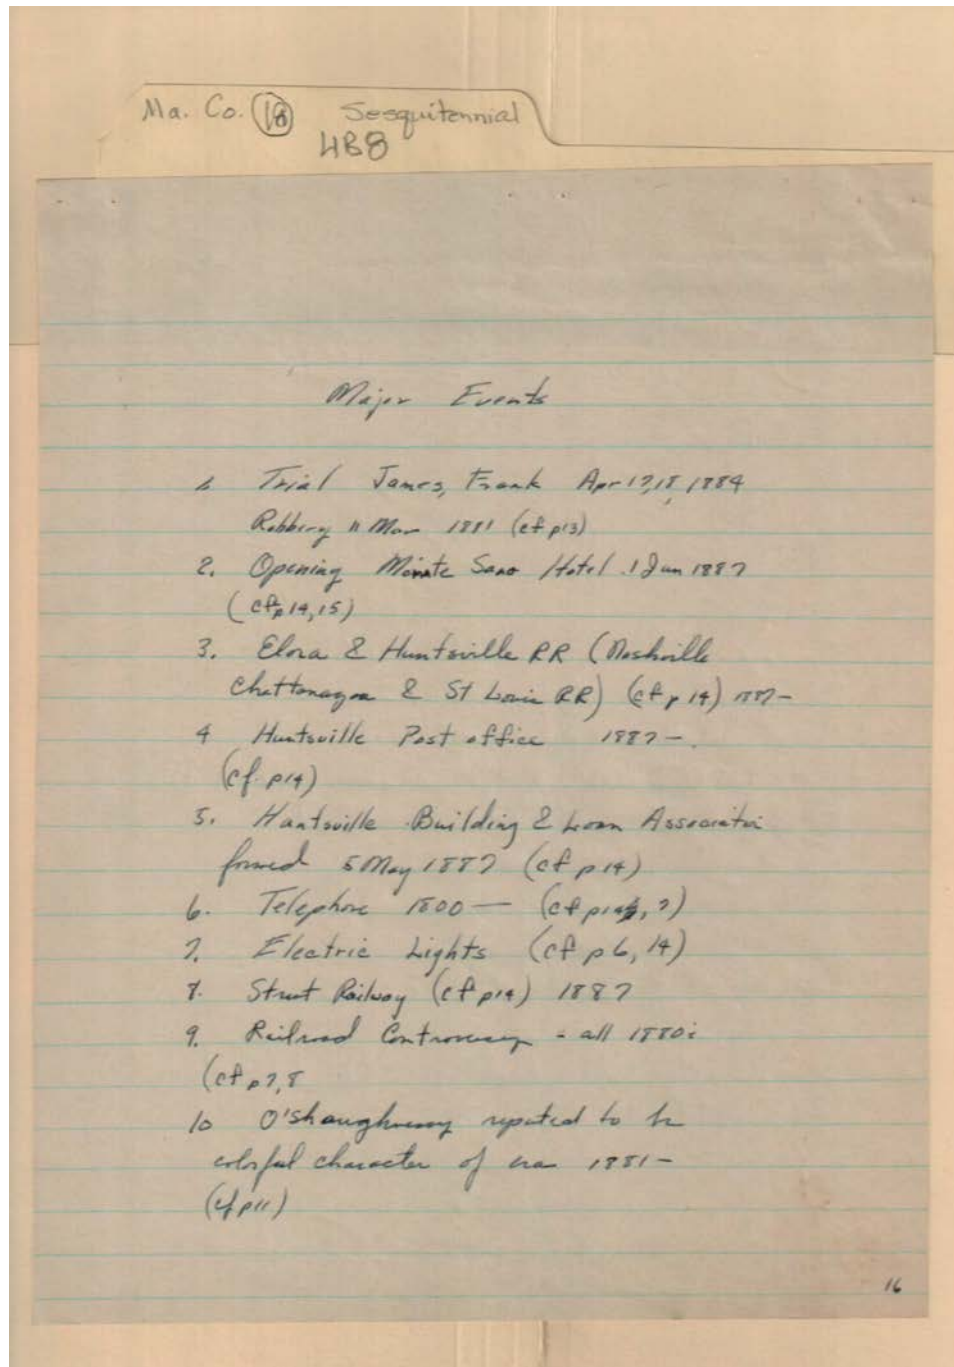 Ma. Co. 18 Sesquitennial
4B8
Major Events
1. Trial James, Frank Apr 17,18, 1884
Robbery 11 Mar 1881 (cf p13)
2. Opening Monte Sano Hotel 1 Jun 1887
(cf p 14,15)
3. Elora & Huntsville RR (Nashville
Chattanooga & St Louis RR) (cf p 14) 1887-
4 Huntsville Post office 1887-
(cf. p14)
5. Huntsville Building & Loan Association
formed 5 May 1887 (cf p 14)
6. Telephone (cf
7. Electric Lights (cf p 6, 14)
8. Street Railway (cf p14) 1887
9. Railroad Controversy - all 1880s
(cf p 7,8
10 O'Shaughnessy reputed to be
colorful character of era 1881-
(cf p11)
16